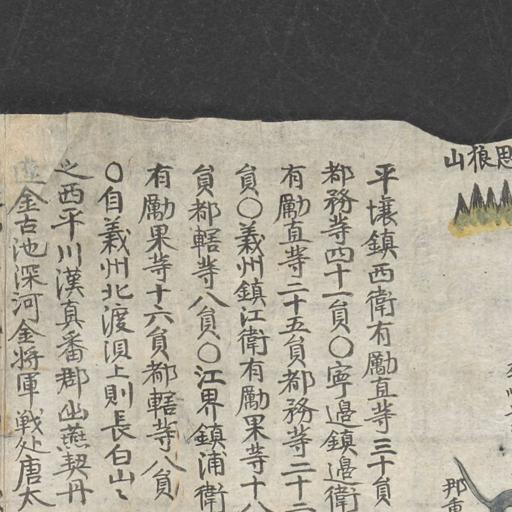 思狼山
平壤鎮西衛有勵直等三十員
都務等四十一員〇寧邊鎮邊衛
有勵直等二十五員都務等二十二
員〇義州鎮江衛有勵果等十八
員都轄等八員〇江界鎮浦衛
有勵果等十六員都轄等八員
〇自義州北渡浿上則長白山〻
之西平川漢真番郡
契丹
金古池深河金將軍戰处唐太